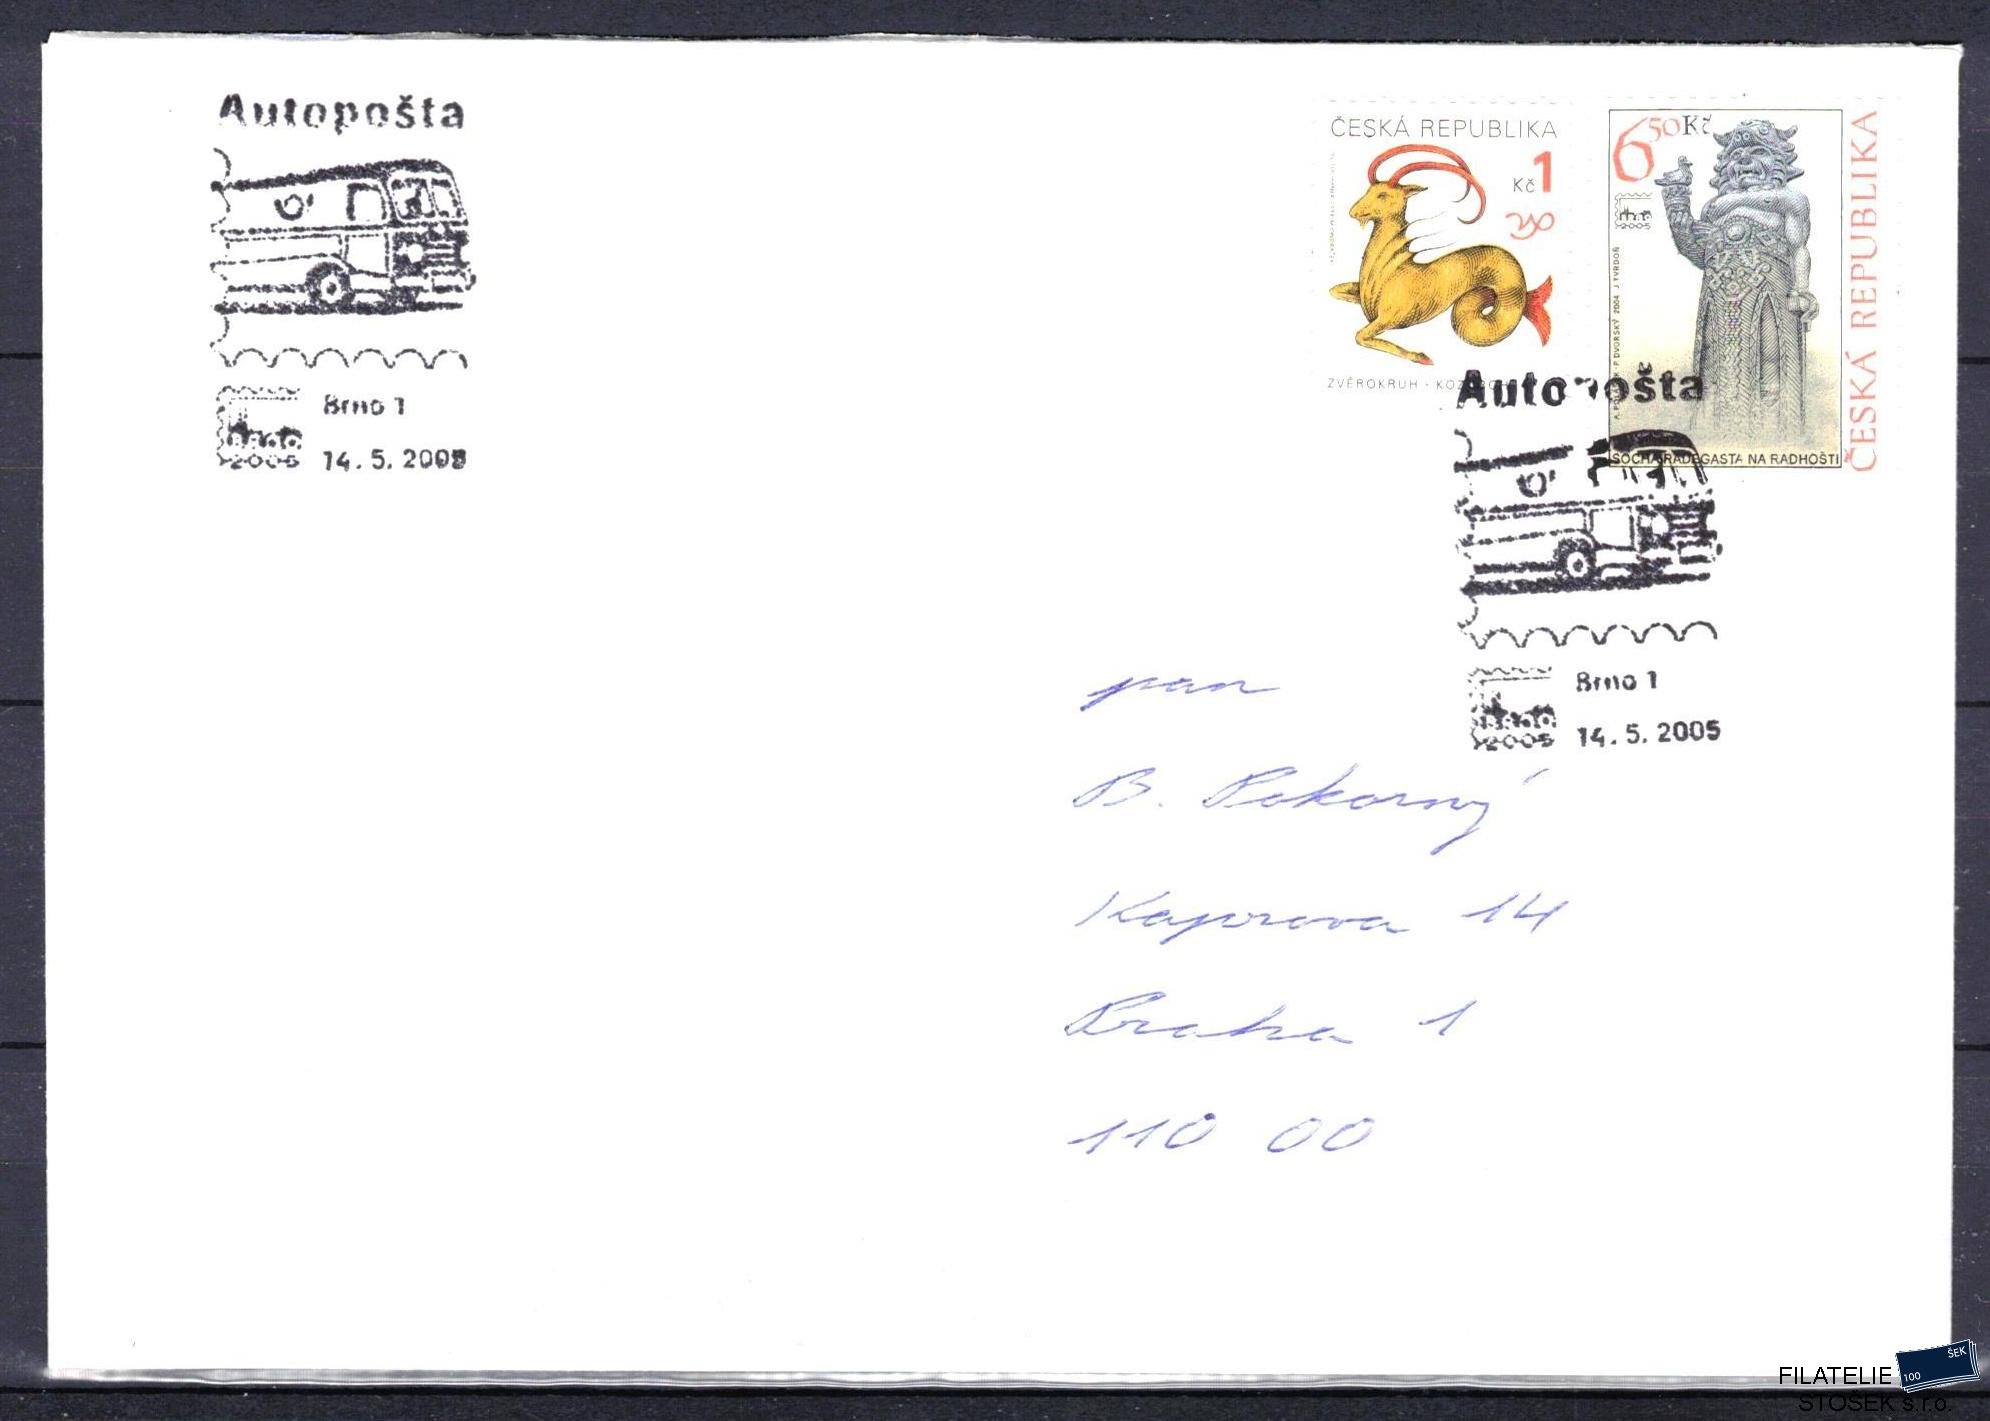 Autopošta
BRNO
2005
Brno 1
14. 5. 2005
ČESKÁ REPUBLIKA
Kč 1
ZVĚROKRUH
6 50 Kč
BRNO
2005
P. DVORSKÝ 2004 J. TVRDOŇ
SOCHA RADEGASTA NA RADHOŠTI
ČESKÁ REPUBLIKA
Autopošta
BRNO
2005
Brno 1
14. 5. 2005
pan
B. Pokorný
Kaprova 14
Praha 1
110 00
FILATELIE
STOŠEK s.r.o.
100
ŠEK